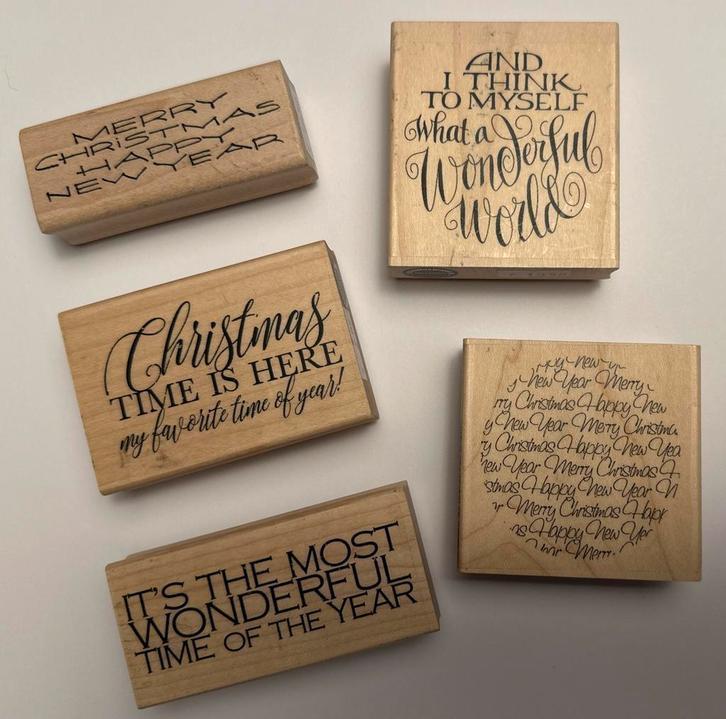 MERRY
CHRISTMAS
HAPPY
NEW YEAR
AND
I THINK
TO MYSELF
What a
Wonderful
World
Christmas
TIME IS HERE
my favorite time of year!
New
New Year Merry
Christmas Happy New
New Year Merry Christma
Christmas Happy New Yea
ew Year Merry Christmas
stmas Happy New Year
Merry Christmas Happ
as Happy New Yea
Merr
IT'S THE MOST
WONDERFUL
TIME OF THE YEAR